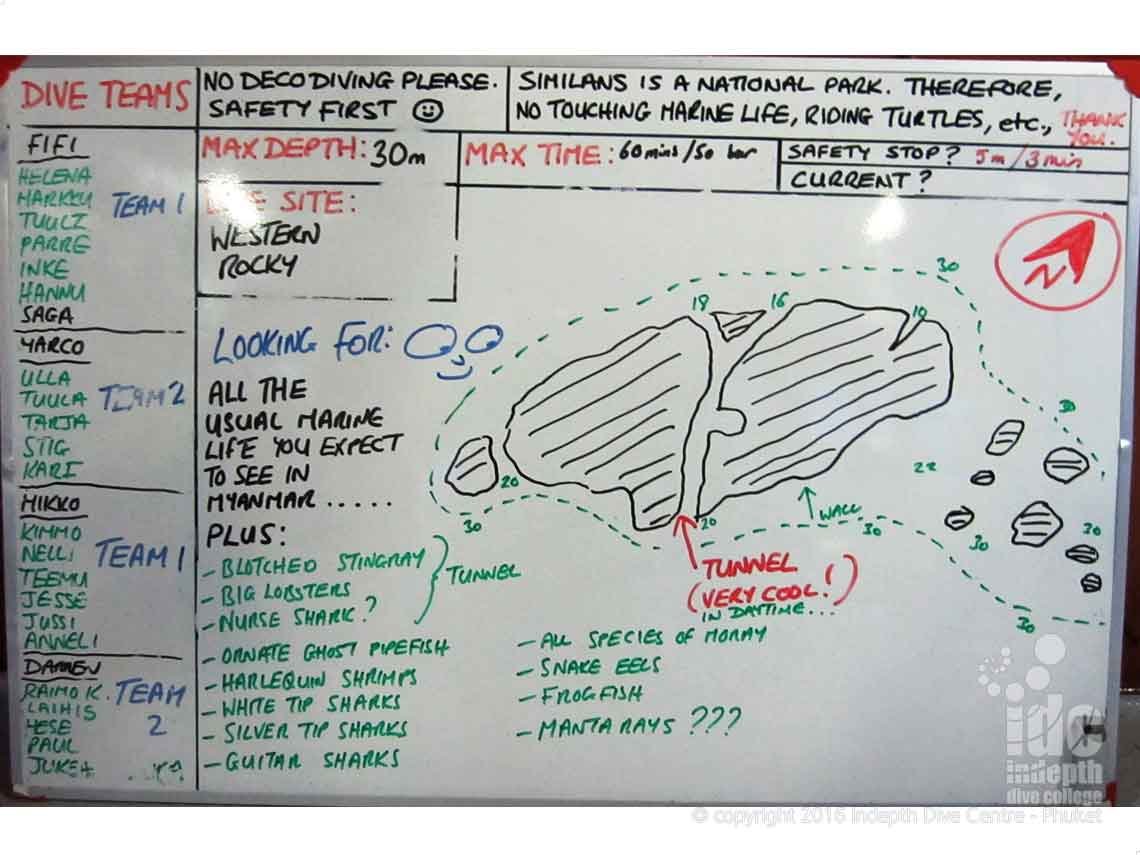 DIVE TEAMS
FIFI
HELENA
MARKKU
TUULI
PARRE
INKE
HANNU
SAGA
TEAM 1
YARCO
ULLA
TUULA
TARJA
STIG
KARI
TEAM 2
MIKKO
KIMMO
NELLI
TEEMU
JESSE
JUSSI
ANNELI
TEAM 1
DARREN
RAIMO K.
LAIHIS
HESE
PAUL
TEAM
2
NO DECO DIVING PLEASE.
SAFETY FIRST
SIMILANS IS A NATIONAL PARK. THEREFORE,
NO TOUCHING MARINE LIFE, RIDING TURTLES, etc.,
THANK
YOU.
MAX DEPTH: 30m
MAX TIME: 60mins/50 bar
SAFETY STOP? 5m/3min
CURRENT?
DIVE SITE:
WESTERN
ROCKY
N
LOOKING FOR:
ALL THE
USUAL MARINE
LIFE YOU EXPECT
TO SEE IN
MYANMAR ......
PLUS:
- BLOTCHED STINGRAY
- BIG LOBSTERS
- NURSE SHARK?
TUNNEL
- ORNATE GHOST PIPEFISH
- HARLEQUIN SHRIMPS
- WHITE TIP SHARKS
- SILVER TIP SHARKS
- GUITAR SHARKS
- ALL SPECIES OF MORAY
- SNAKE EELS
- FROGFISH
- MANTA RAYS ???
30
18
16
10
30
22
20
30
20
WALL
30
30
30
30
TUNNEL
(VERY COOL!)
IN DAYTIME...
idc
indepth
dive college
© copyright 2016 Indepth Dive Centre - Phuket